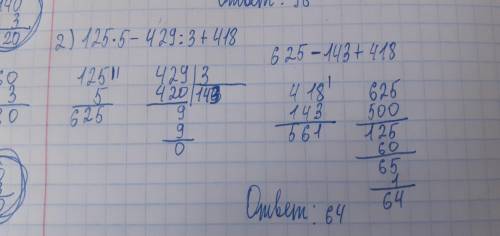 Ответ:
140
3
20
2) 125·5-429:3+418
625-143+418
60
3
0
125 11
5
625
429 | 3
420 | 143
9
9
0
418 1
143
561
625
500
125
60
65
1
64
Ответ: 64